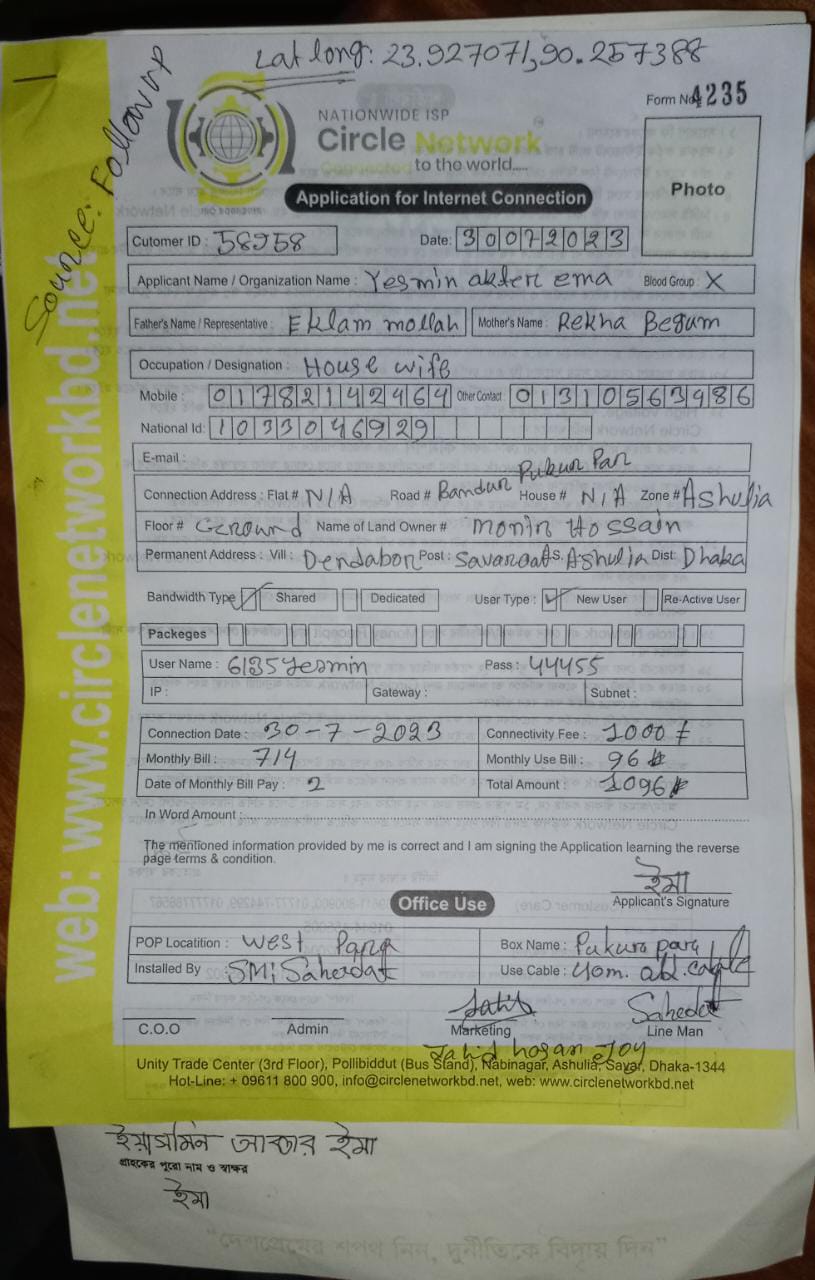 Lat long: 23.927071,90.257388
Source: Followup
Form No. 4235
NATIONWIDE ISP
Circle Network
Connected to the world.....
ISO 9001:2015
Photo
Application for Internet Connection
Cutomer ID : 58958 Date: 30072023
Applicant Name / Organization Name : Yesmin akter ema Blood Group : X
Father's Name / Representative : Eklam mollah Mother's Name : Rekha Begum
Occupation / Designation : House wife
Mobile : 01782142464 Other Contact : 01310563986
National Id: 1033046929
E-mail :
Connection Address : Flat # N/A Road # Bandur Pukur Par House # N/A Zone # Ashulia
Floor # Ground Name of Land Owner # Monir Hossain
Permanent Address : Vill : Dendabor Post : Savar P.S. Ashulia Dist: Dhaka
Bandwidth Type ✓ Shared Dedicated User Type : ✓ New User Re-Active User
Packeges
User Name : 6135yesmin Pass : 44455
IP : Gateway : Subnet :
Connection Date : 30-7-2023 Connectivity Fee : 1000 ৳
Monthly Bill : 714 Monthly Use Bill : 96 ৳
Date of Monthly Bill Pay : 2 Total Amount : 1096 ৳
In Word Amount :
The mentioned information provided by me is correct and I am signing the Application learning the reverse
page terms & condition.
ইমা
Applicant's Signature
Office Use
POP Locatition : West Para Box Name : Pukur para
Installed By SM: Sahedat Use Cable : 40m. old. cable
C.O.O Admin Marketing Sahedat Line Man
Jahid hosan Joy
Unity Trade Center (3rd Floor), Pollibiddut (Bus Stand), Nabinagar, Ashulia, Savar, Dhaka-1344
Hot-Line: + 09611 800 900, info@circlenetworkbd.net, web: www.circlenetworkbd.net
web: www.circlenetworkbd.net
ইয়াসমিন আক্তার ইমা
গ্রাহকের পুরো নাম ও স্বাক্ষর
ইমা
"দেশপ্রেমের শপথ নিন, দুর্নীতিকে বিদায় দিন"